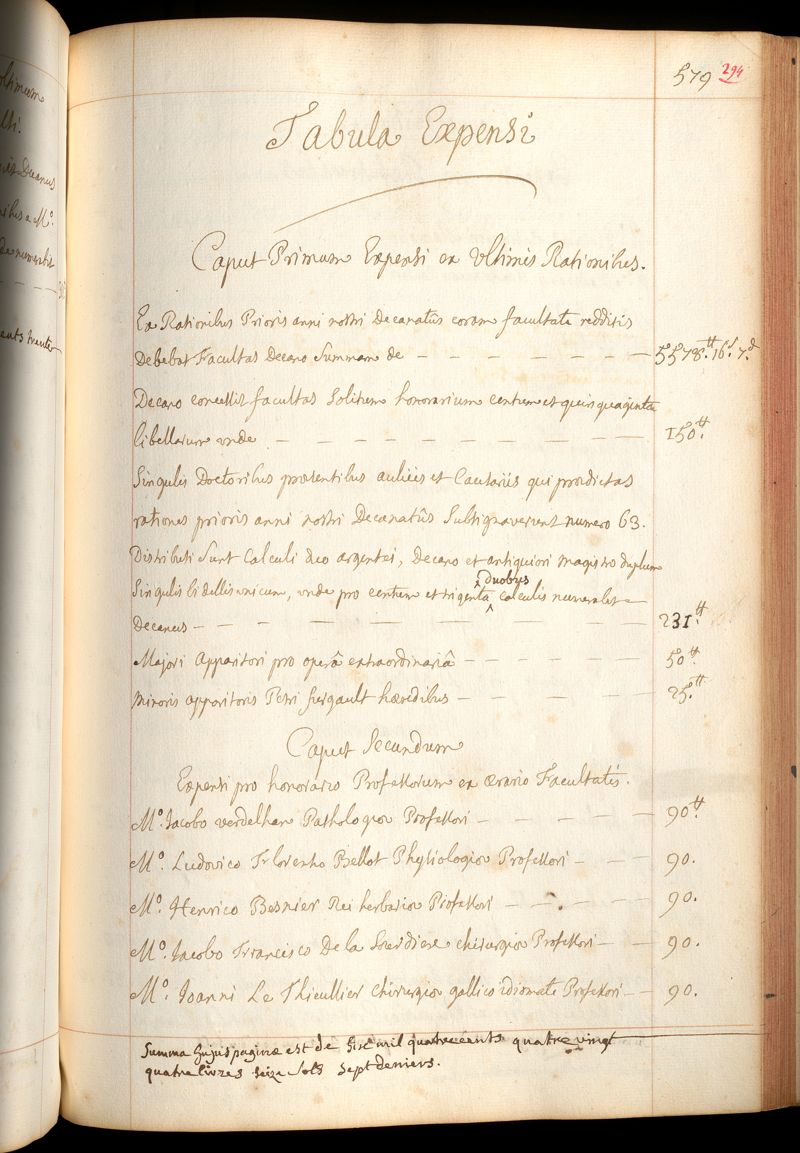 579 294
Tabula Expensi
Caput Primum Expensi ex Ultimis Rationibus.
Ex Rationibus Prioris anni nostri Decanatûs coram facultate redditis
Debebat Facultas Decano Summam de — — — — — — — 5578.tt 16.s 7.d
Decano concessit facultas Solitum honorarium centum et quinquaginta
libellarum unde — — — — — — — — — — — 150.tt
Singulis Doctoribus præsentibus aulicis et Cautariis qui prædictas
rationes prioris anni nostri Decanatûs Subsignaverunt numero 63.
Distributi Sunt Calculi duo argentei, Decano et antiquiori magistro duplum
duobus
Singulis bidellis unicum, unde pro centum et triginta ^ calculis numerabit
Decanus — — — — — — — — 231.tt
Majori Apparitori pro operâ extraordinariâ — — — — — 50.tt
Minoris apparitoris Petri furgault hæredibus — — — — — 25.tt
Caput Secundum
Expensi pro honorario Professorum ex ærario Facultatis.
M.o Jacobo verdelhan Pathologiæ Professori — — — — — 90.tt
M.o Ludovico Florentio Bellot Physiologiæ Professori — — — 90.
M.o Henrico Besnier Rei herbariæ Professori — — — — 90.
M.o Jacobo Francisco De la Soeurdiere chirurgiæ Professori — — 90.
M.o Joanni Le Thieullier chirurgiæ gallico idiomate Professori — — 90.
Summa hujus paginæ est de Six mil quatrecents quatre vingt
quatre livres seize Sols Sept deniers.